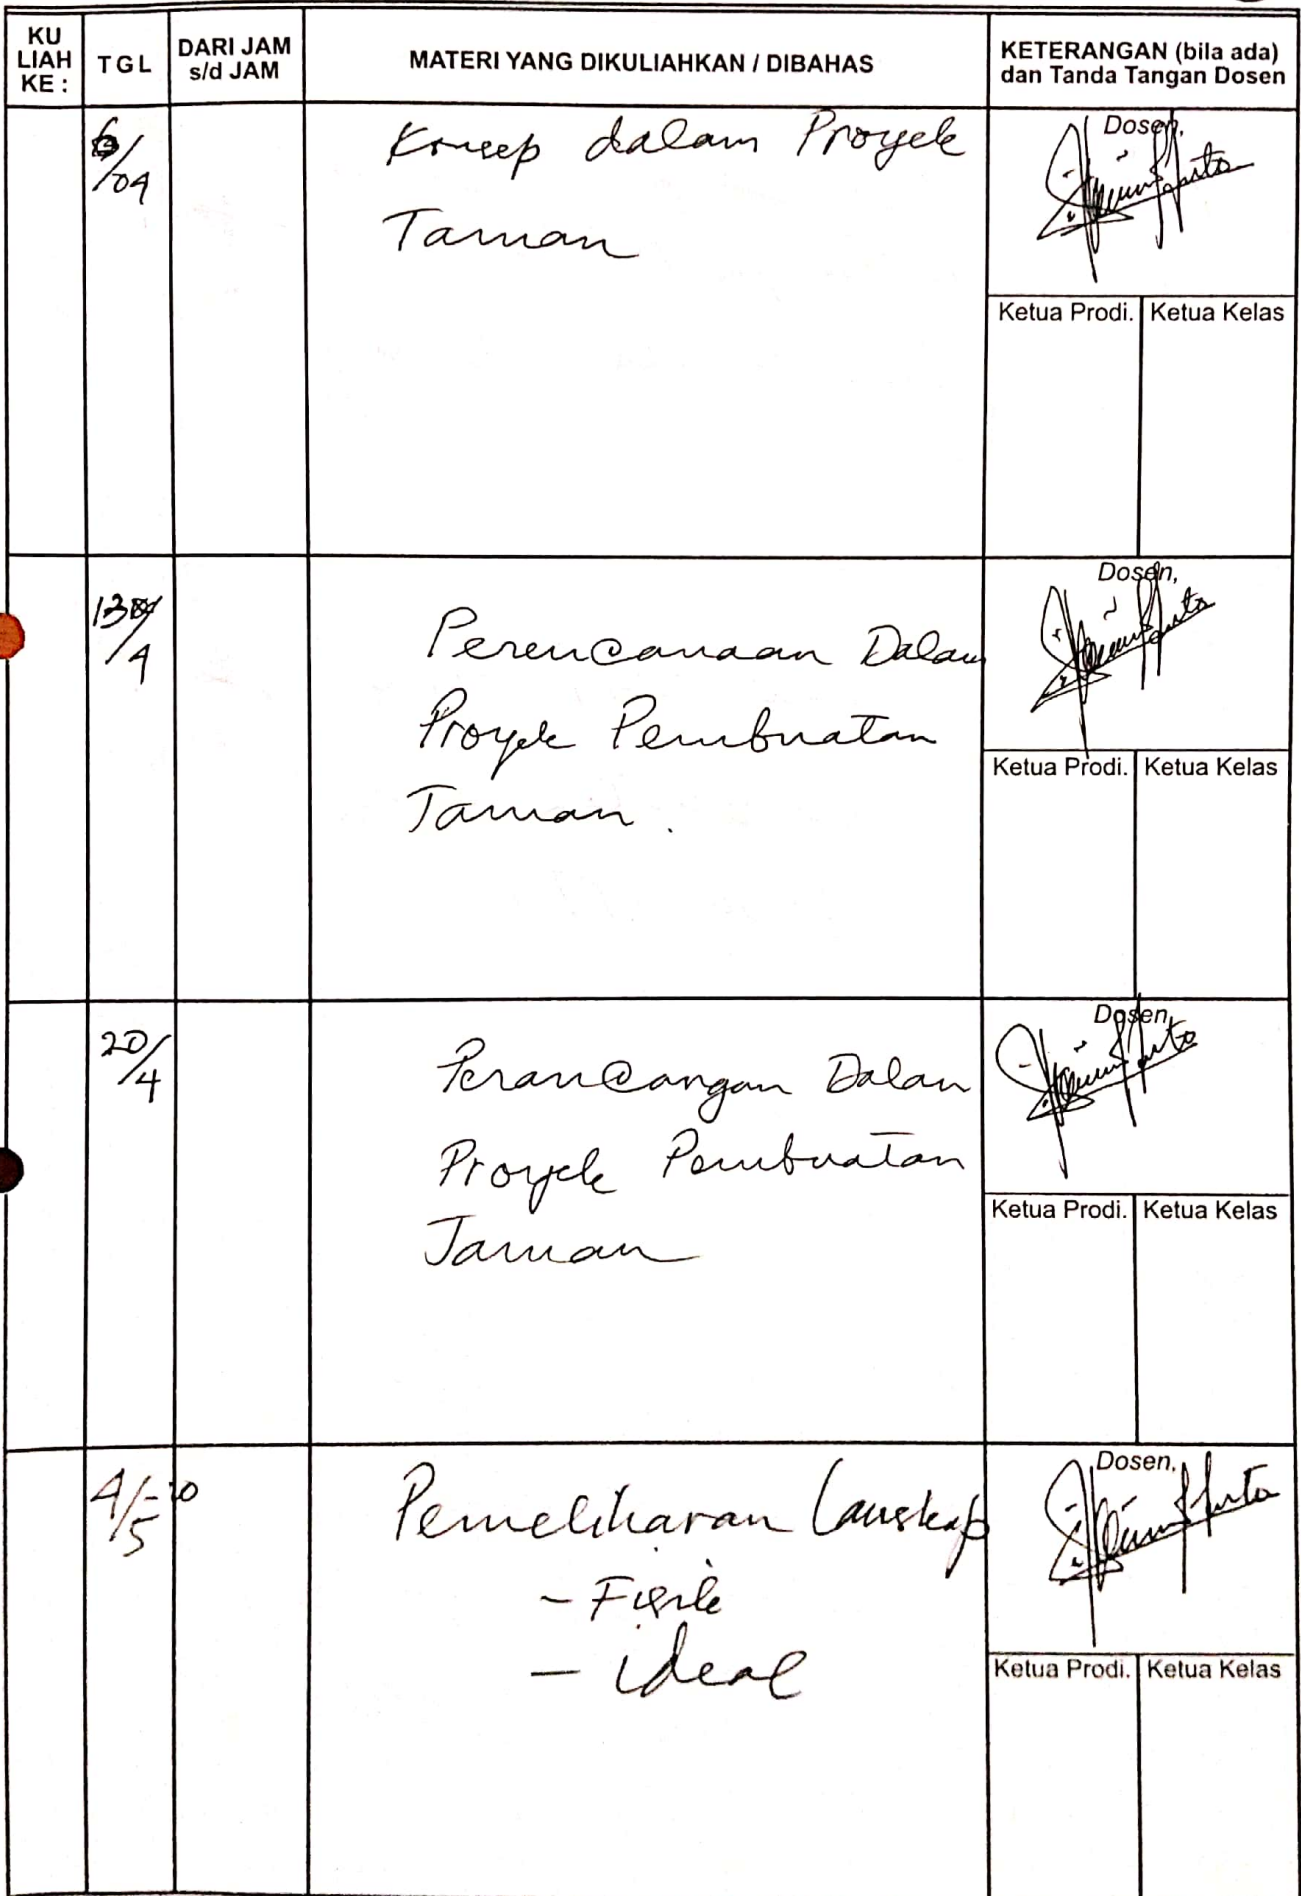 KU LIAH KE :
TGL
DARI JAM s/d JAM
MATERI YANG DIKULIAHKAN / DIBAHAS
KETERANGAN (bila ada) dan Tanda Tangan Dosen
6/04
Konsep dalam Proyek
Taman
Dosen,
Ketua Prodi. Ketua Kelas
13/4
Perencanaan Dalam
Proyek Pembuatan
Taman.
Dosen,
Ketua Prodi. Ketua Kelas
20/4
Perancangan Dalam
Proyek Pembuatan
Taman
Dosen,
Ketua Prodi. Ketua Kelas
4/5
Pemeliharan Lanskap
- Fisik
- ideal
Dosen,
Ketua Prodi. Ketua Kelas